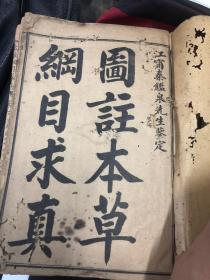 江甯秦鑑泉先生鉴定
圖註本草
綱目求真